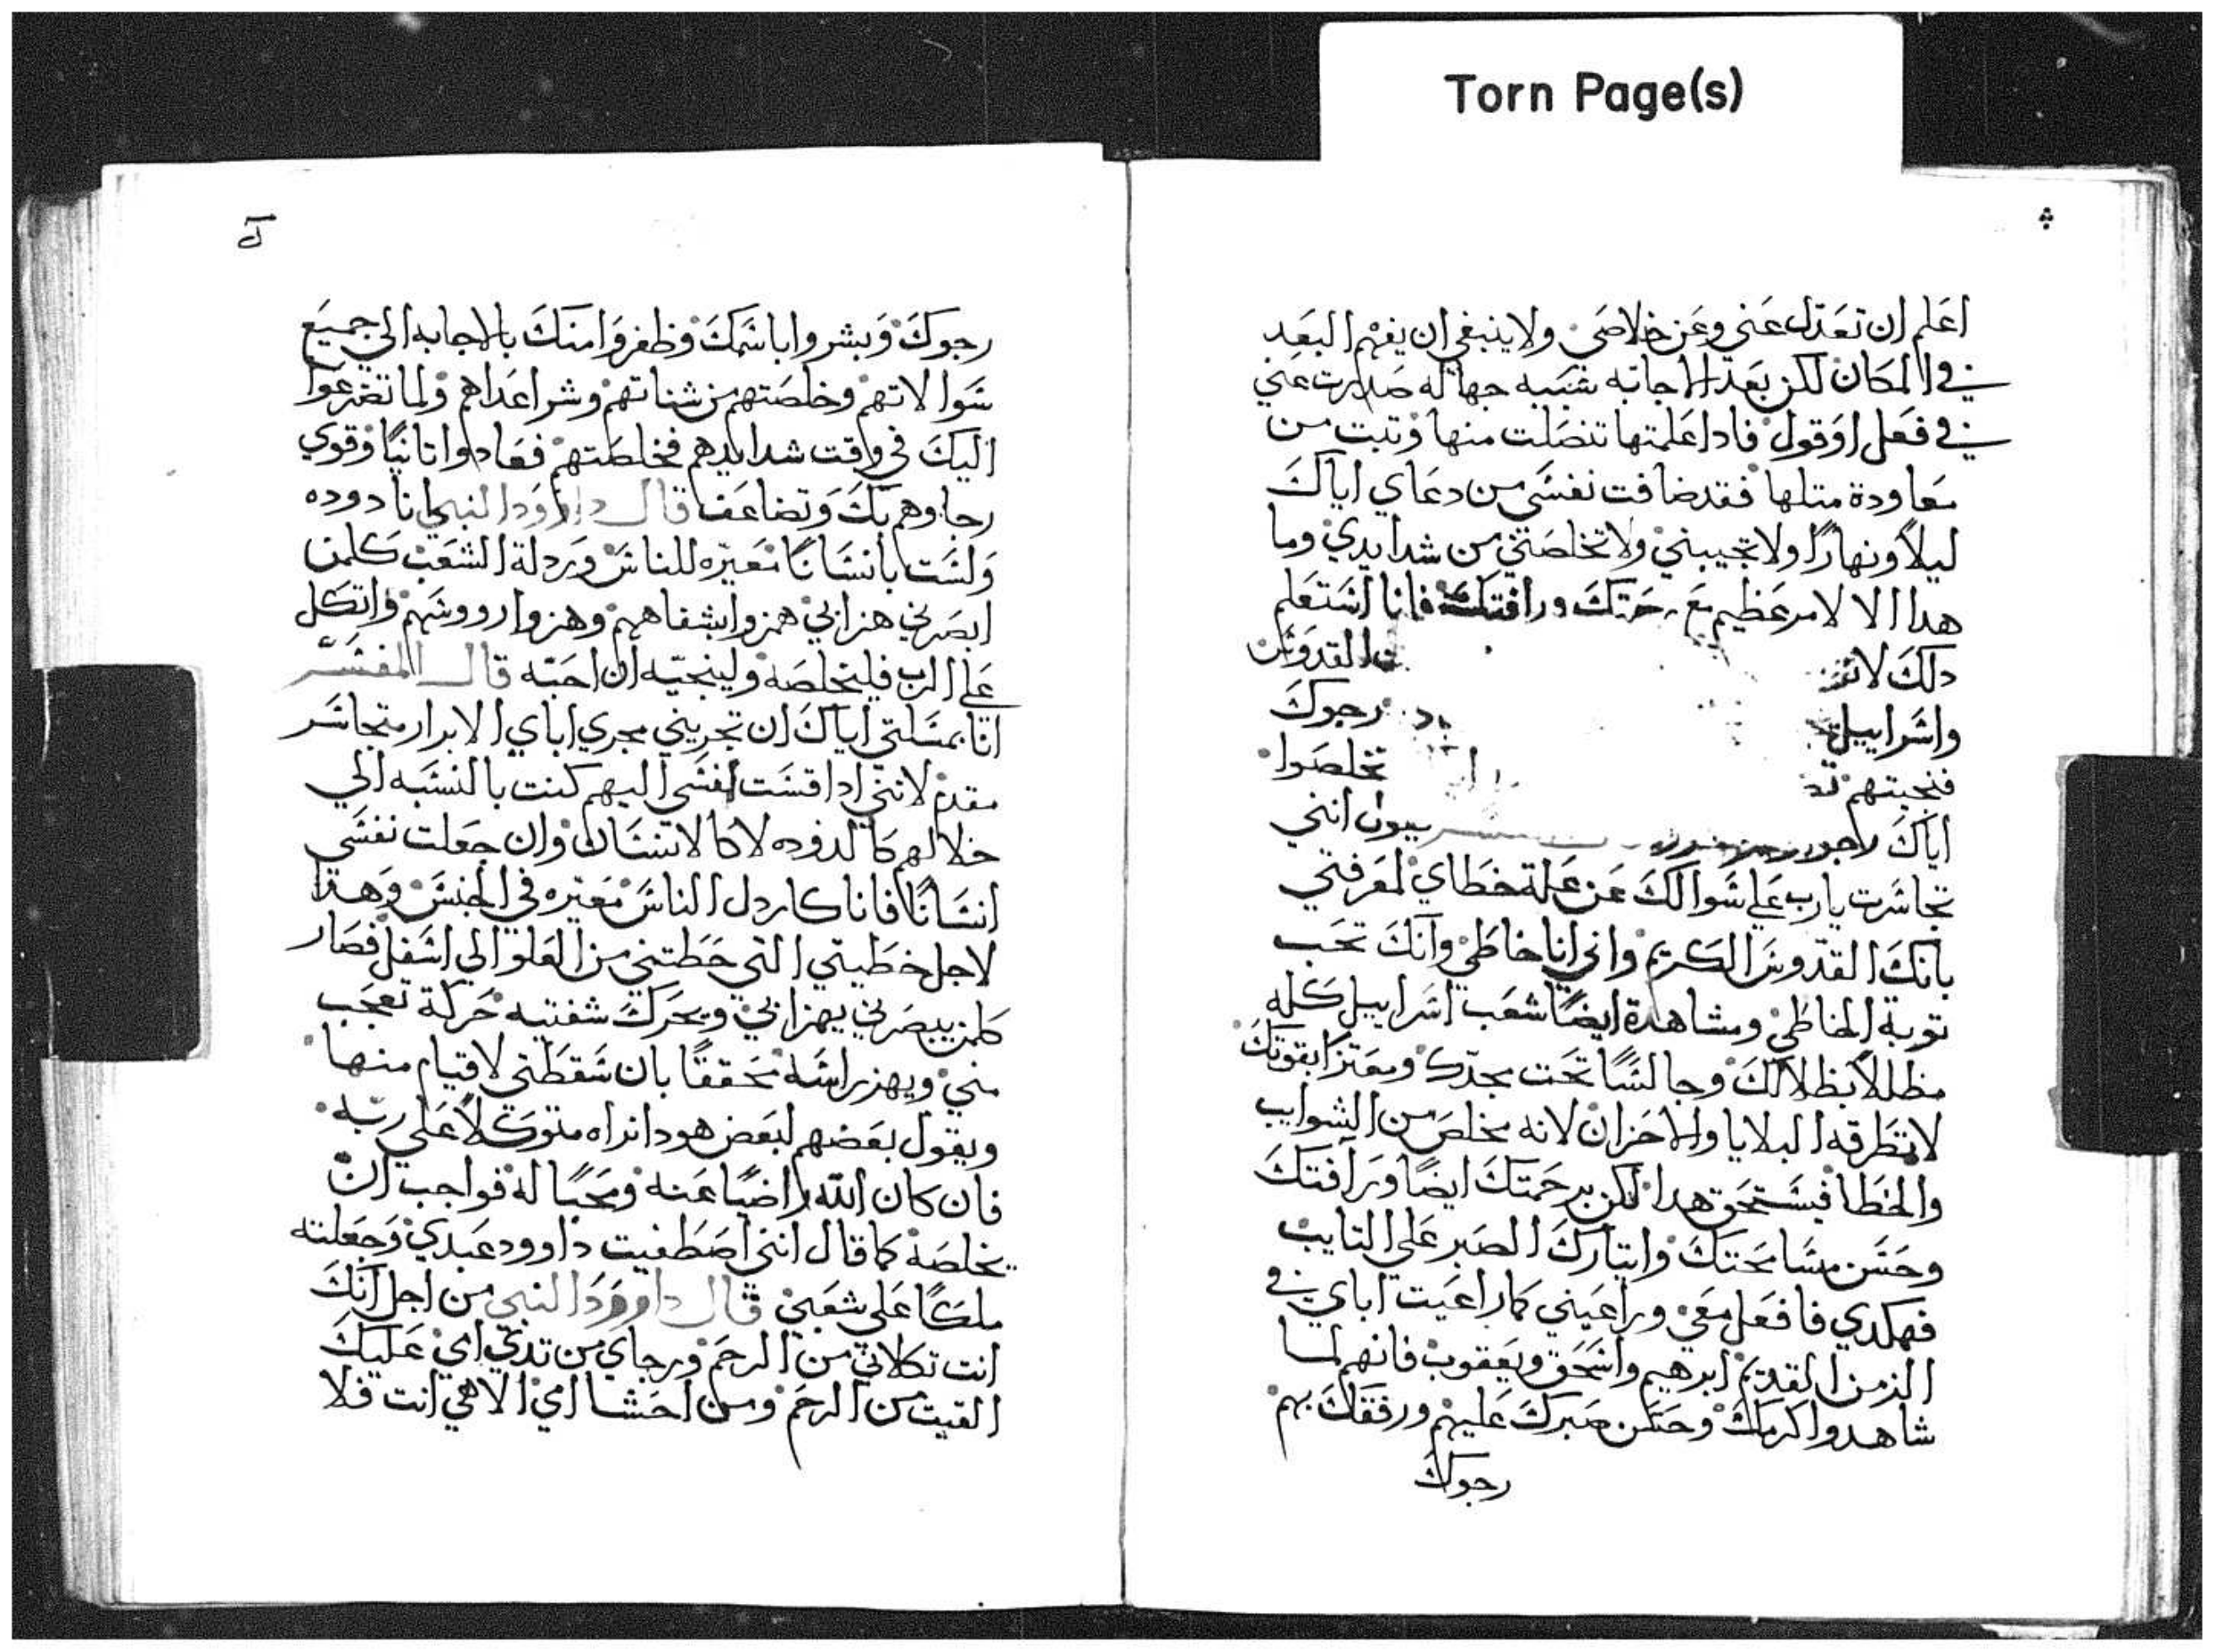 Torn Page(s)
اعلم ان تعدل عني وعن خلاصي ولا ينبغي ان يفهم البعد
في المكان لكن بعد الاجابه بسبه جهاله صدرت عني
في فعل او قول فادا علمتها تنصلت منها وتبت من
معاودة متلها فقد ضاقت نفسي من دعاي اياك
ليلاً ونهارًا ولا تجيبني ولا تخلصني من شدايدي وما
هدا الا لامر عظيم مع رحمتك ورافتك فانا استعلم
دلك القدوس
واسراييل رجوك
فنجيتهم تخلصوا
اياك انني
تجاسرت يا رب علي سوالك عن علة خطاي لمعرفتي
بانك القدوس الكريم واني انا خاطي وانك تحب
توبة الخاطي ومشاهدة ايضًا شعب اسراييل كله
مظللاً بظلالك وجالسًا تحت مجدك ومعتزًا بقوتك
لا تطرقه البلايا والاحزان لانه مخلص من الشوايب
والخطا فيستحق هدا لكن برحمتك ايضًا ورافتك
وحسن مسامحتك وايتارك الصبر علي التايب
فهكدي فافعل معي وراعيني كما راعيت اباي في
الزمن القديم ابرهيم واسحق ويعقوب فانهم لما
شاهدوا كرمك وحسن صبرك عليهم ورفقك بهم
رجوك
رجوك وبشروا باسمك وظفروا منك بالاجابه الي جميع
سوالاتهم وخلصتهم من شناتهم وشر اعداهم ولما تضرعوا
اليك في وقت شدايدهم فخلصتهم فعادوا تانيًا وقوي
رجاوهم بك وتضاعف قال داوود النبي انا دوده
ولست بانسانًا معيّره للناس وردلة الشعب كلمن
ابصرني هزا بي همزوا بشفاههم وهزوا رووسهم واتكل
علي الرب فليخلصه ولينجيه ان احبه قال المفسر
انا بمسلتي اياك ان تجريني مجري اباي الابرار متجاسر
مقدم لانني ادا قست نفسي اليهم كنت بالنسبه الي
خلالهم كالدوده لا كالانسان وان جعلت نفسي
انسانًا فانا كاردل الناس معيّره في الجنس وهدا
لاجل خطيتي التي حطتني من العلو الي اسفل فصار
كلمن يبصرني يهزا بي ويحرك شفتيه حركة تعجب
مني ويهز راسه محققًا بان سقطتي لا قيام منها
ويقول بعضهم لبعض هودا نراه متوكلاً علي ربه
فان كان الله راضيًا عنه ومحبًا له فواجب ان
يخلصه كما قال انني اصطفيت داوود عبدي وجعلته
ملكًا علي شعبي قال داوود النبي من اجل انك
انت تكلاني من الرحم ورجاي من تدي امي عليك
القيت من الرحم ومن احشا امي الاهي انت فلا